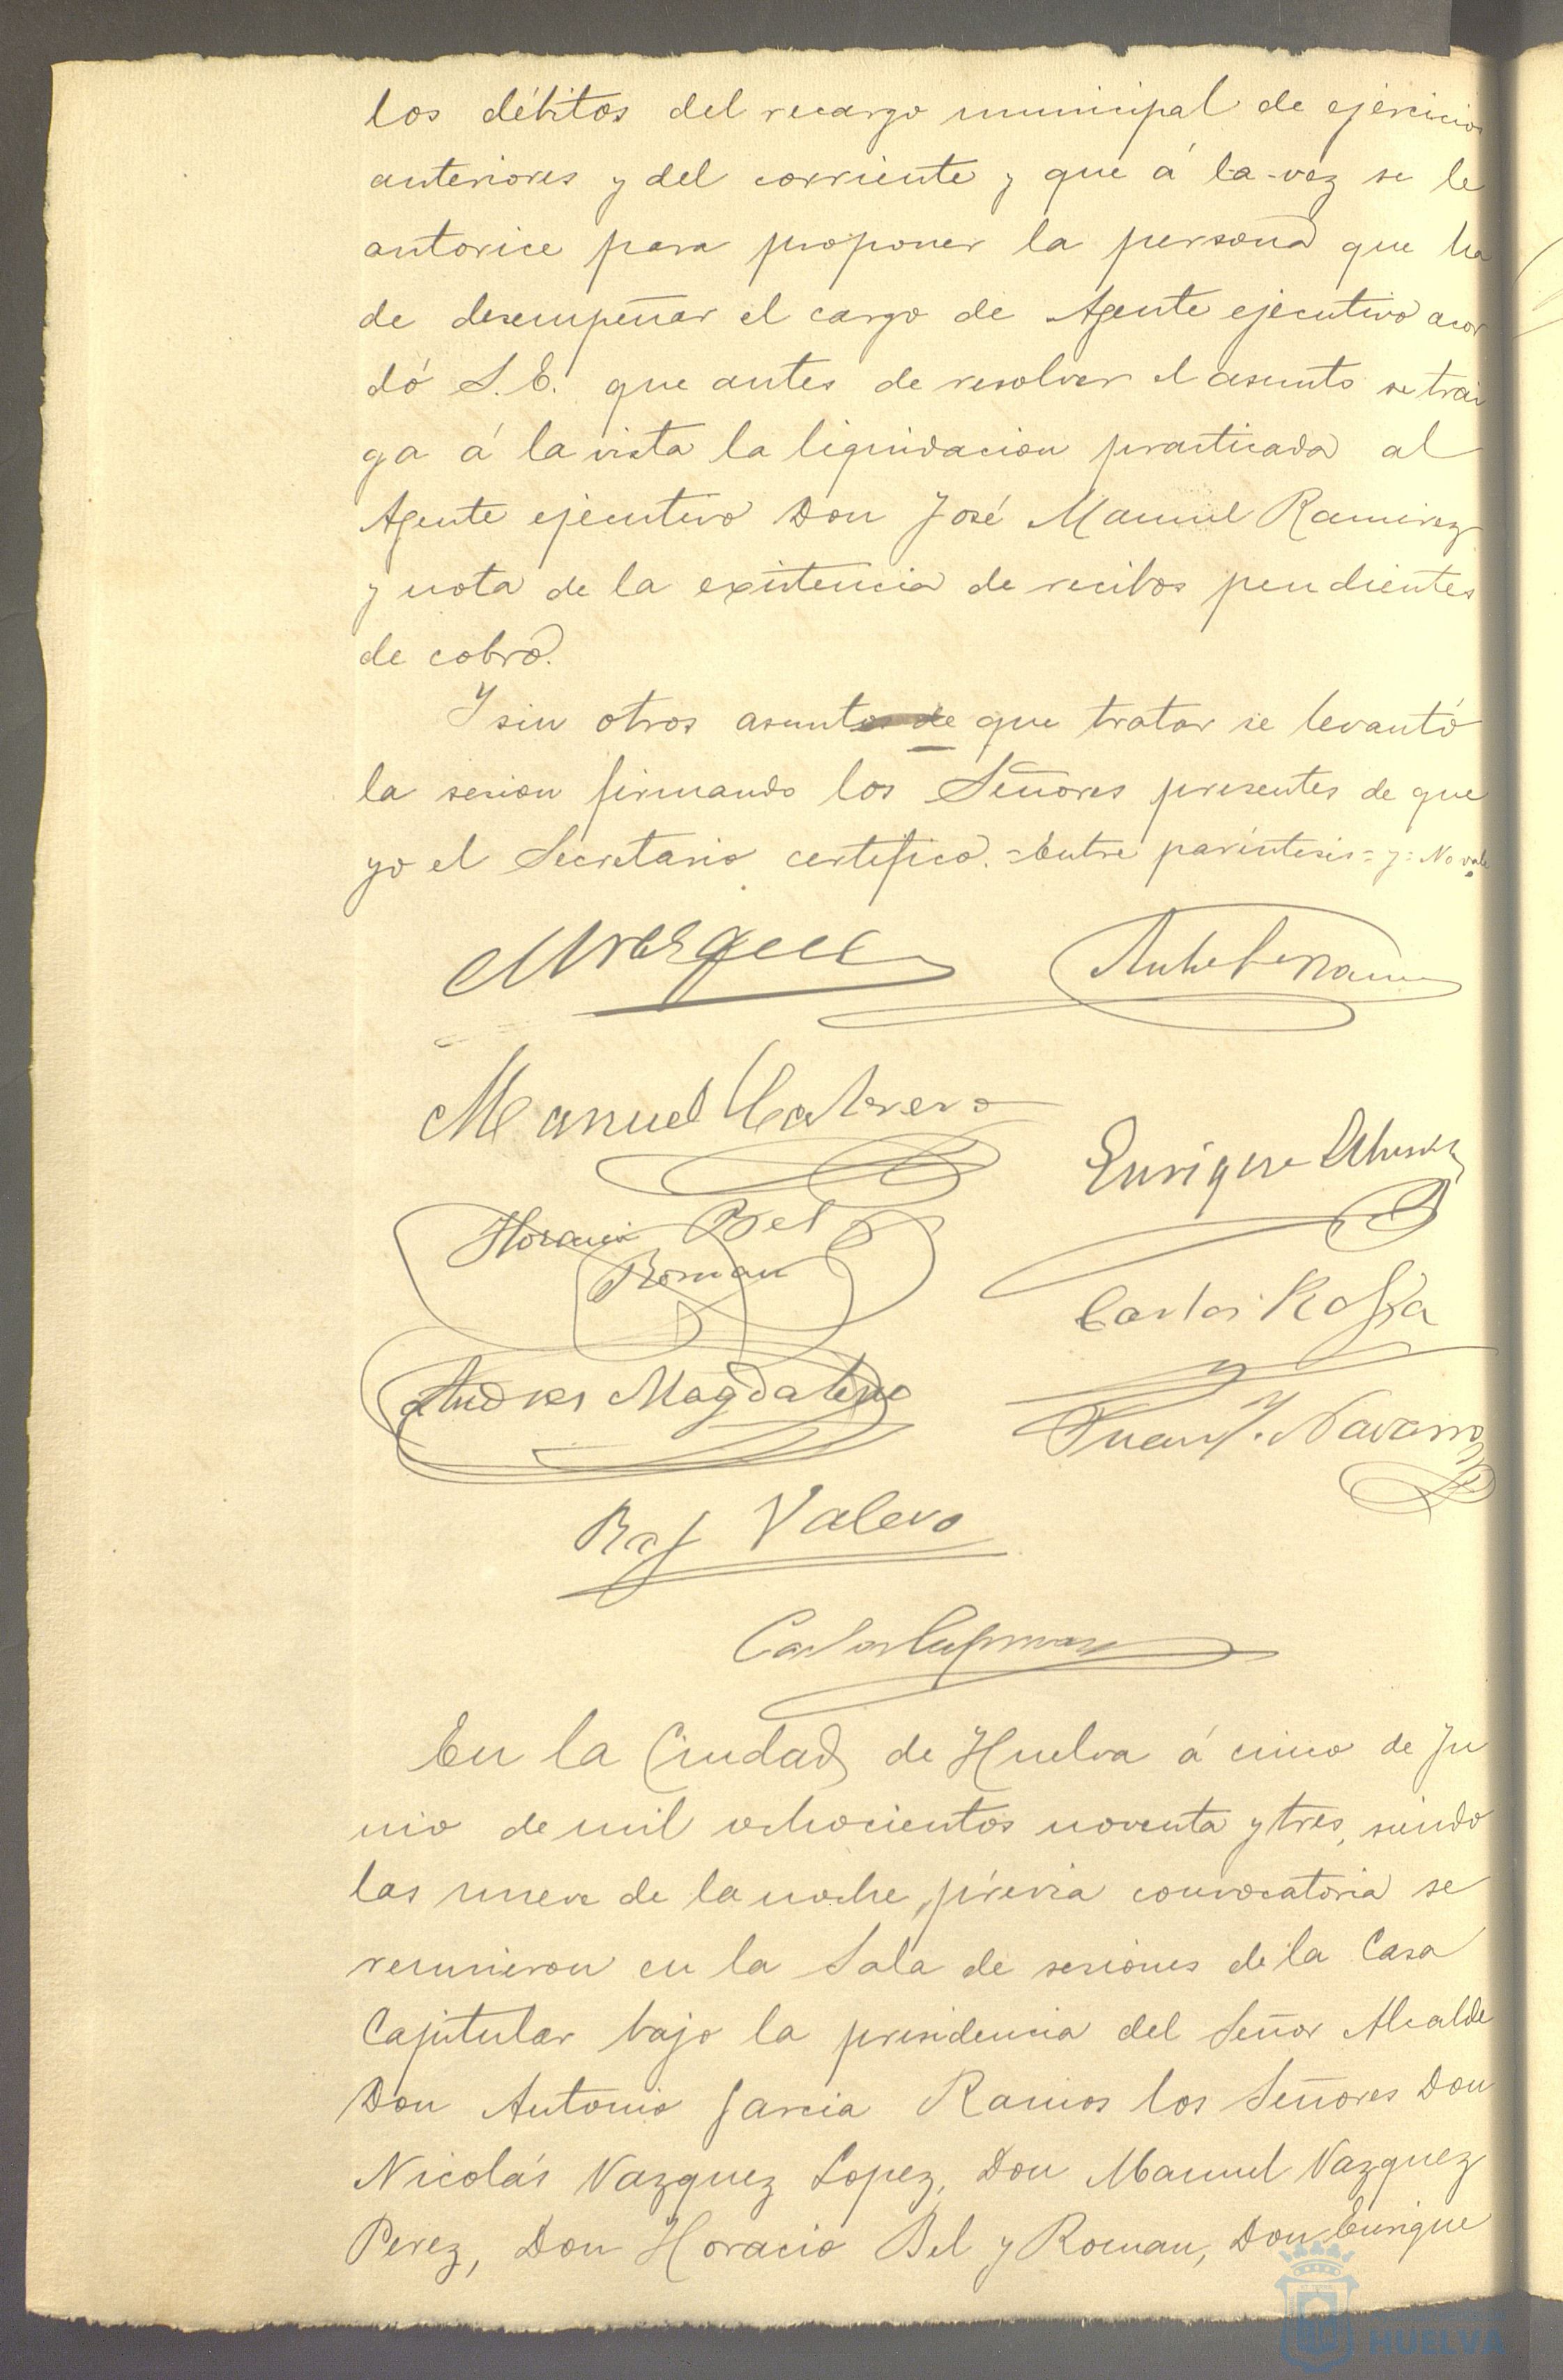 los débitos del recargo municipal de ejercicios
anteriores y del corriente y que á la vez se le
autorice para proponer la persona que ha
de desempeñar el cargo de Agente ejecutivo acor
dó S.E. que antes de resolver el asunto se trai
ga á la vista la liquidacion practicada al
Agente ejecutivo Don José Manuel Ramirez
y nota de la existencia de recibos pendientes
de cobro.
Y sin otros asuntos de que tratar se levantó
la sesion firmando los Señores presentes de que
yo el Secretario certifico. = Entre paréntesis = y = No vale
Manuel Cabrera
Enrique
Horacio Bel
Roman
Carlos
Andres Magdaleno
Juan J. Navarro
Raf Valero
Carlos
En la Ciudad de Huelva á cinco de Ju
nio de mil ochocientos noventa y tres, siendo
las nueve de la noche, prévia convocatoria se
reunieron en la Sala de sesiones de la Casa
Capitular bajo la presidencia del Señor Alcalde
Don Antonio Garcia Ramos los Señores Don
Nicolás Vazquez Lopez, Don Manuel Vazquez
Perez, Don Horacio Bel y Roman, Don Enrique
HUELVA